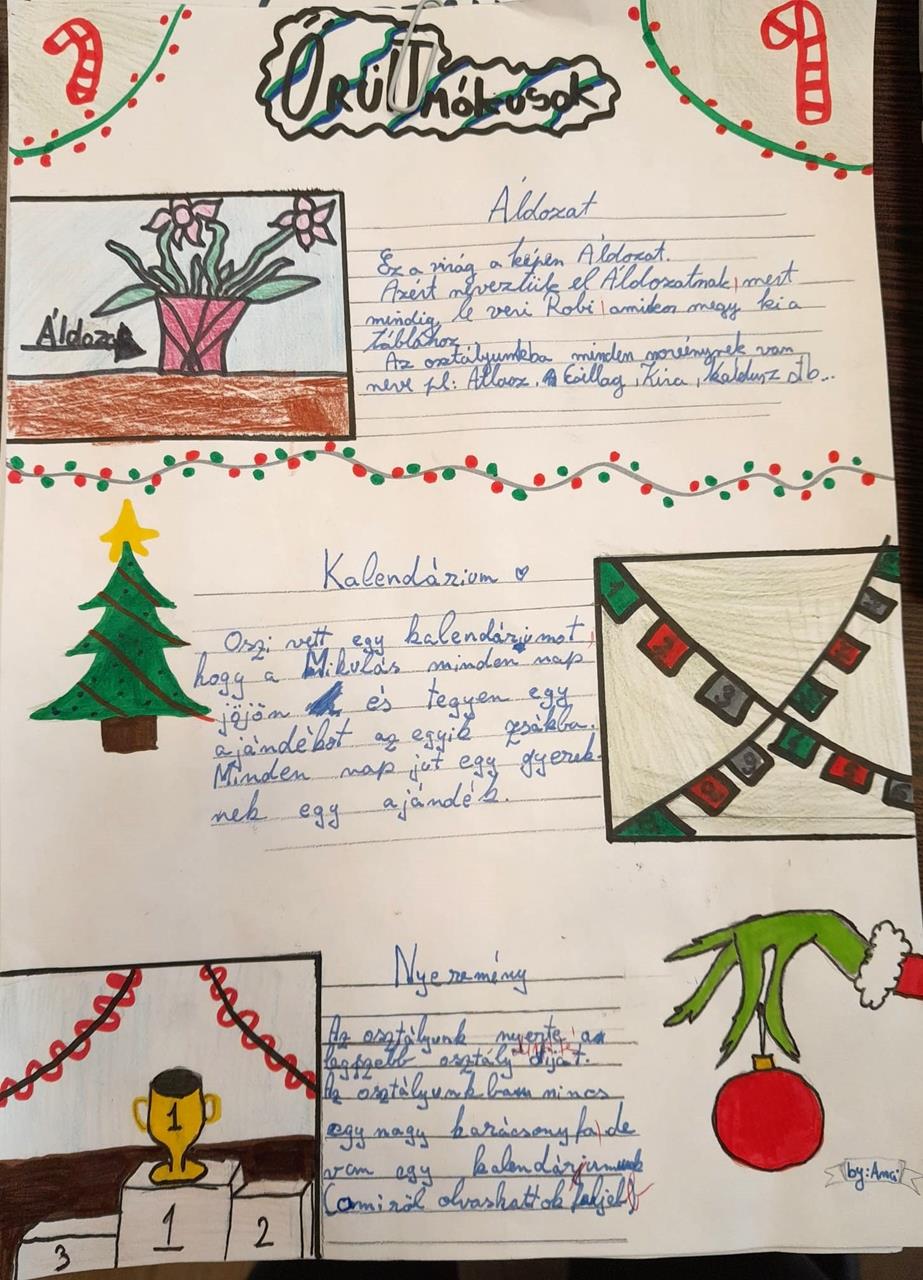 Őrült mókusok
Áldozat
Ez a virág a képen Áldozat.
Azért neveztük el Áldozatnak, mert
mindig le veri Robi, amikor megy ki a
táblához
Az osztályunkba minden növénynek van
neve pl: Csillag, Kira, Kaktusz stb...
Áldozat
Kalendárium
Oszi vett egy kalendáriumot,
hogy a Mikulás minden nap
jöjön és tegyen egy
ajándékot az egyik zsákba.
Minden nap jut egy gyerek-
nek egy ajándék.
1
2
3
4
5
6
8
9
Nyeremény
Az osztályunk nyerte a
legszebb osztály díját.
Az osztályunkban nincs
egy nagy karácsonyfa, de
van egy kalendáriumunk
(amiről olvashattok feljebb
1
1
2
3
by: Amci